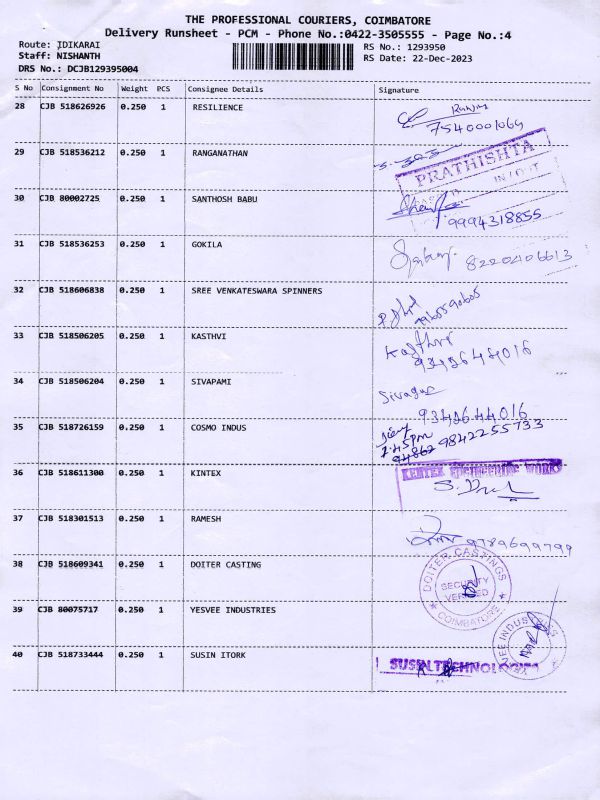 THE PROFESSIONAL COURIERS, COIMBATORE
Delivery Runsheet - PCM - Phone No.:0422-3505555 - Page No.:4
Route: IDIKARAI RS No.: 1293950
Staff: NISHANTH RS Date: 22-Dec-2023
DRS No.: DCJB129395004
S No Consignment No Weight PCS Consignee Details Signature
28 CJB 518626926 0.250 1 RESILIENCE
7540001069
29 CJB 518536212 0.250 1 RANGANATHAN
PRATHISHTA
IN/OUT
30 CJB 80002725 0.250 1 SANTHOSH BABU
9994318855
31 CJB 518536253 0.250 1 GOKILA
8220406613
32 CJB 518606838 0.250 1 SREE VENKATESWARA SPINNERS
33 CJB 518506205 0.250 1 KASTHVI
Kasthvi
9342644016
34 CJB 518506204 0.250 1 SIVAPAMI
9342644016
35 CJB 518726159 0.250 1 COSMO INDUS
9842255733
94862
36 CJB 518611300 0.250 1 KINTEX
KENTEX ENGINEERING WORKS
37 CJB 518301513 0.250 1 RAMESH
9789699799
38 CJB 518609341 0.250 1 DOITER CASTING
DOITER CASTINGS
SECURITY
VERIFIED
COIMBATORE
39 CJB 80075717 0.250 1 YESVEE INDUSTRIES
40 CJB 518733444 0.250 1 SUSIN ITORK